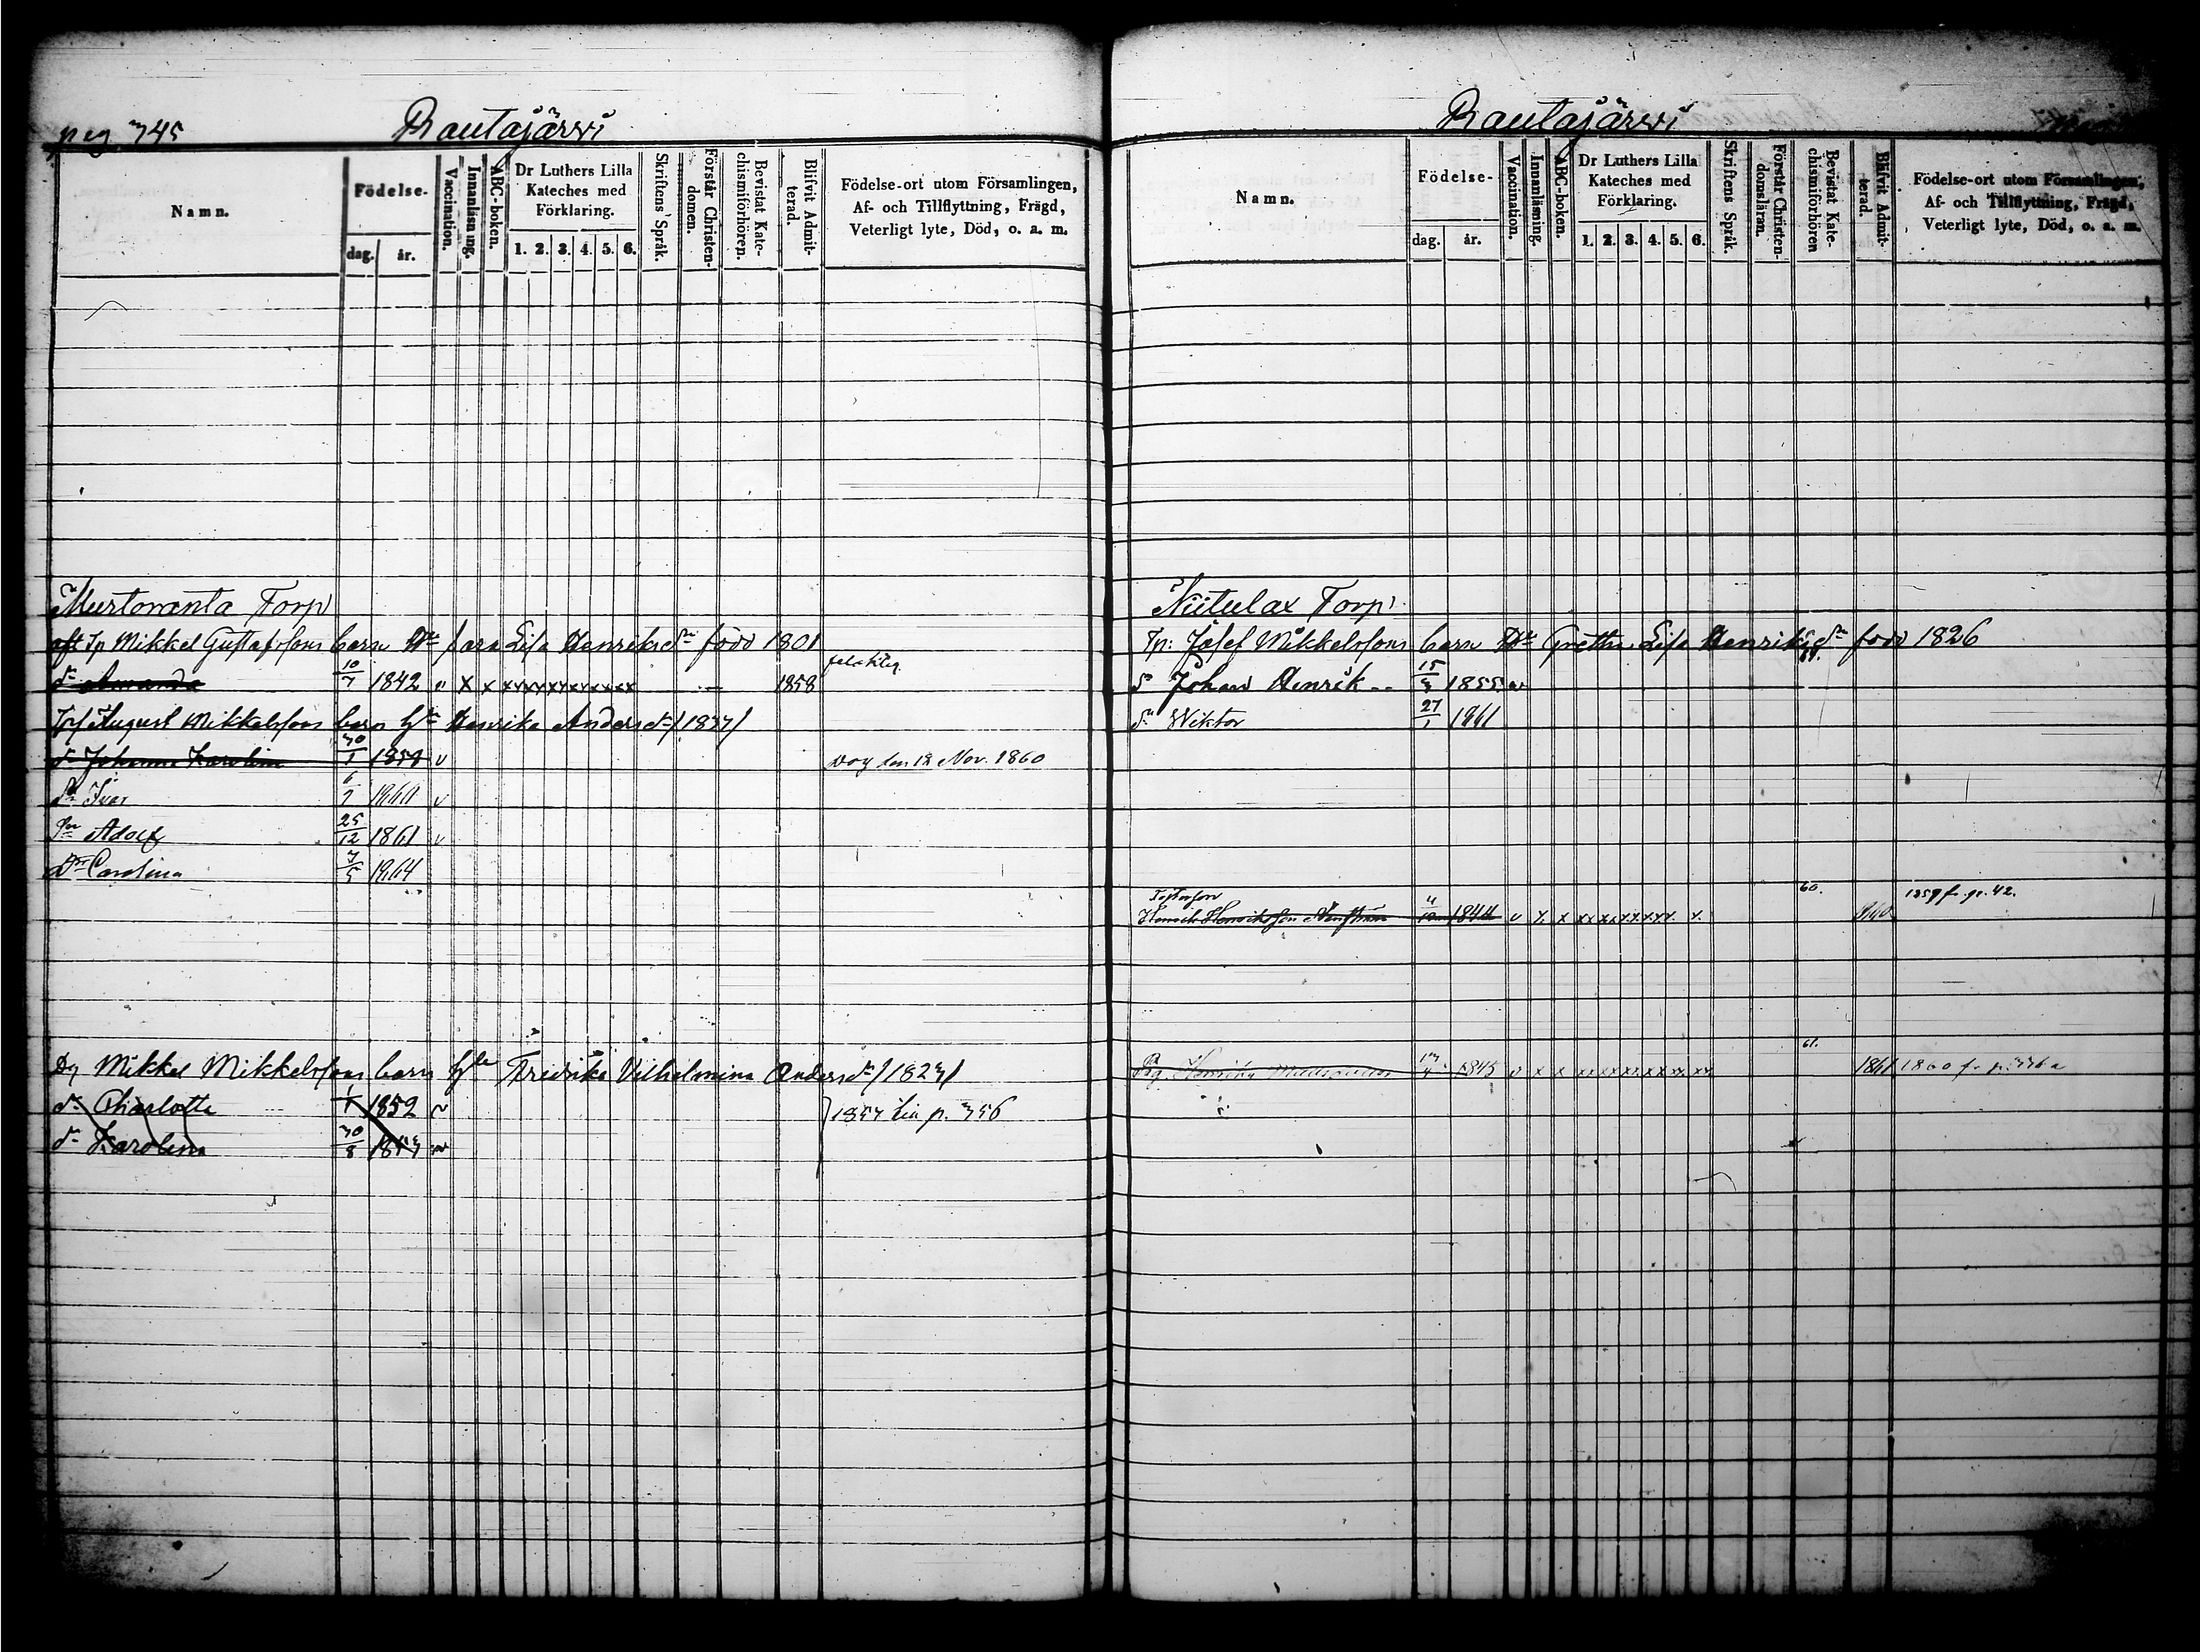 pag. 345 Rautajärvi
Namn. Födelse- dag. år. Vaccination. Innanläsning. ABC-boken. Dr Luthers Lilla Kateches med Förklaring. 1. 2. 3. 4. 5. 6. Skriftens Språk. Förstår Christendomen. Bevistat Katechismiförhören. Blifvit Admitterad. Födelse-ort utom Församlingen, Af- och Tillflyttning, Frägd, Veterligt lyte, Död, o. a. m.
Murtoranta Torp
aft Tp Mikkel Gustafssons barn Lisa Henriksdr född 1801
dr Amanda 10/7 1842 v x x xx xx xx xx xx xx 1858
Tp August Mikkelssons barn Henrika Andersdr /1837/
dr Johanna Karolina 30/1 1858 v dog den 12 Nov. 1860
Ivar 1860 v
Sn Adolf 25/12 1861 v
Dr Carolina 3/5 1864
Dg Mikkel Mikkelssons barn Fredrika Vilhelmina Andersdr /1823/
dr Charlotta 1/1 1852 v 1857 p. 356
dr Karolina 30/8 v
Rautajärvi
Namn. Födelse- dag. år. Vaccination. Innanläsning. ABC-boken. Dr Luthers Lilla Kateches med Förklaring. 1. 2. 3. 4. 5. 6. Skriftens Språk. Förstår Christendomsläran. Bevistat Katechismiförhören Blifvit Admitterad. Födelse-ort utom Församlingen, Af- och Tillflyttning, Frägd, Veterligt lyte, Död, o. a. m.
Niitulax Torp.
Tp: Josef Mikkelssons barn Gretha Lisa Henriksdr född 1826
Sn Johan Henrik 15/3 1855 v
Sn Wiktor 27/1 1861
60. 1859 fr. p. 42.
Henrik Henriksson 1844 v x x xx xx xx xx x. 1860
61.
Pig. Henrika 1845 v x x xx xx xx xx xx 1861 1860 fr.